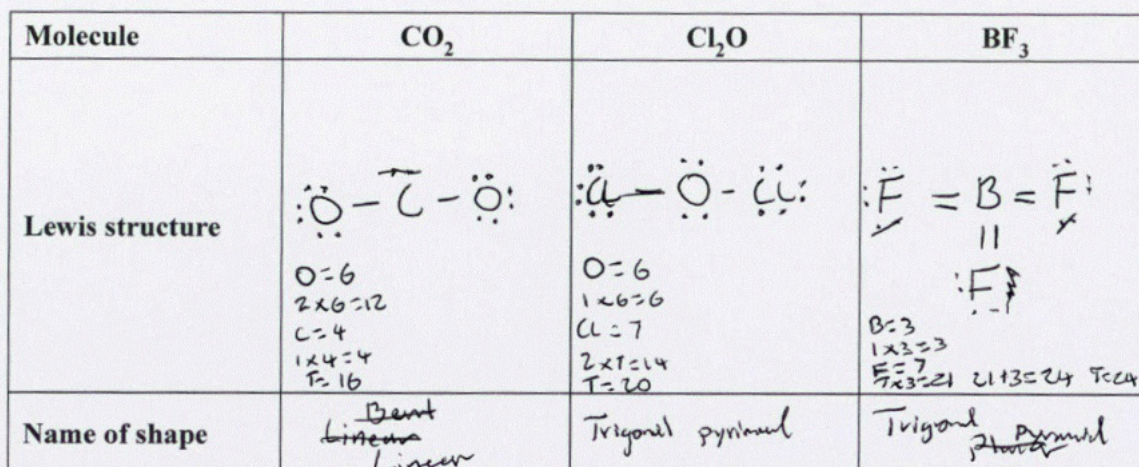 Molecule CO2 Cl2O BF3
Lewis structure
:O - C - O:
:Cl - O - Cl:
:F = B = F:
:F
O=6
2×6=12
C=4
1×4=4
T=16
O=6
1×6=6
Cl=7
2×7=14
T=20
B=3
1×3=3
F=7
7×3=21 21+3=24 T=24
Name of shape
Bent
Linear
Linear
Trigonal pyrimad
Trigonal
Planar pyramid